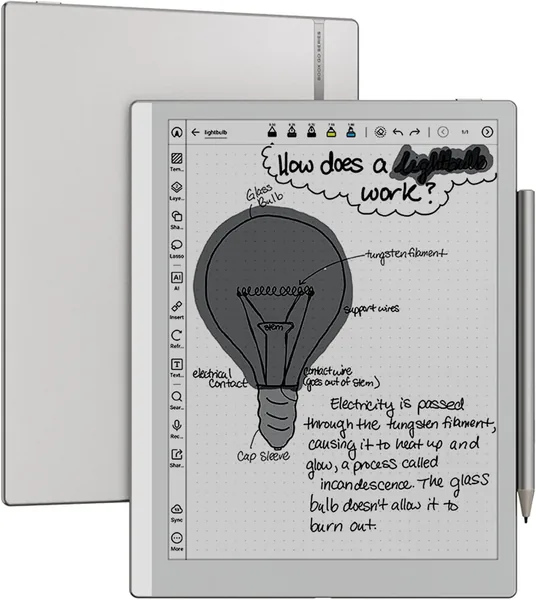 BOOX GO SERIES
A
lightbulb
1/1
Tem...
Laye...
Sha...
Lasso
AI
AI
Insert
Refr...
T
Text...
Sear...
Rec...
Shar...
Sync
More
How does a lightbulb
work?
Glass
Bulb
tungsten filament
support wires
stem
electrical
contact
contact wire
(goes out of stem)
Cap sleeve
Electricity is passed
through the tungsten filament,
causing it to heat up and
glow, a process called
incandescence. The glass
bulb doesn't allow it to
burn out.